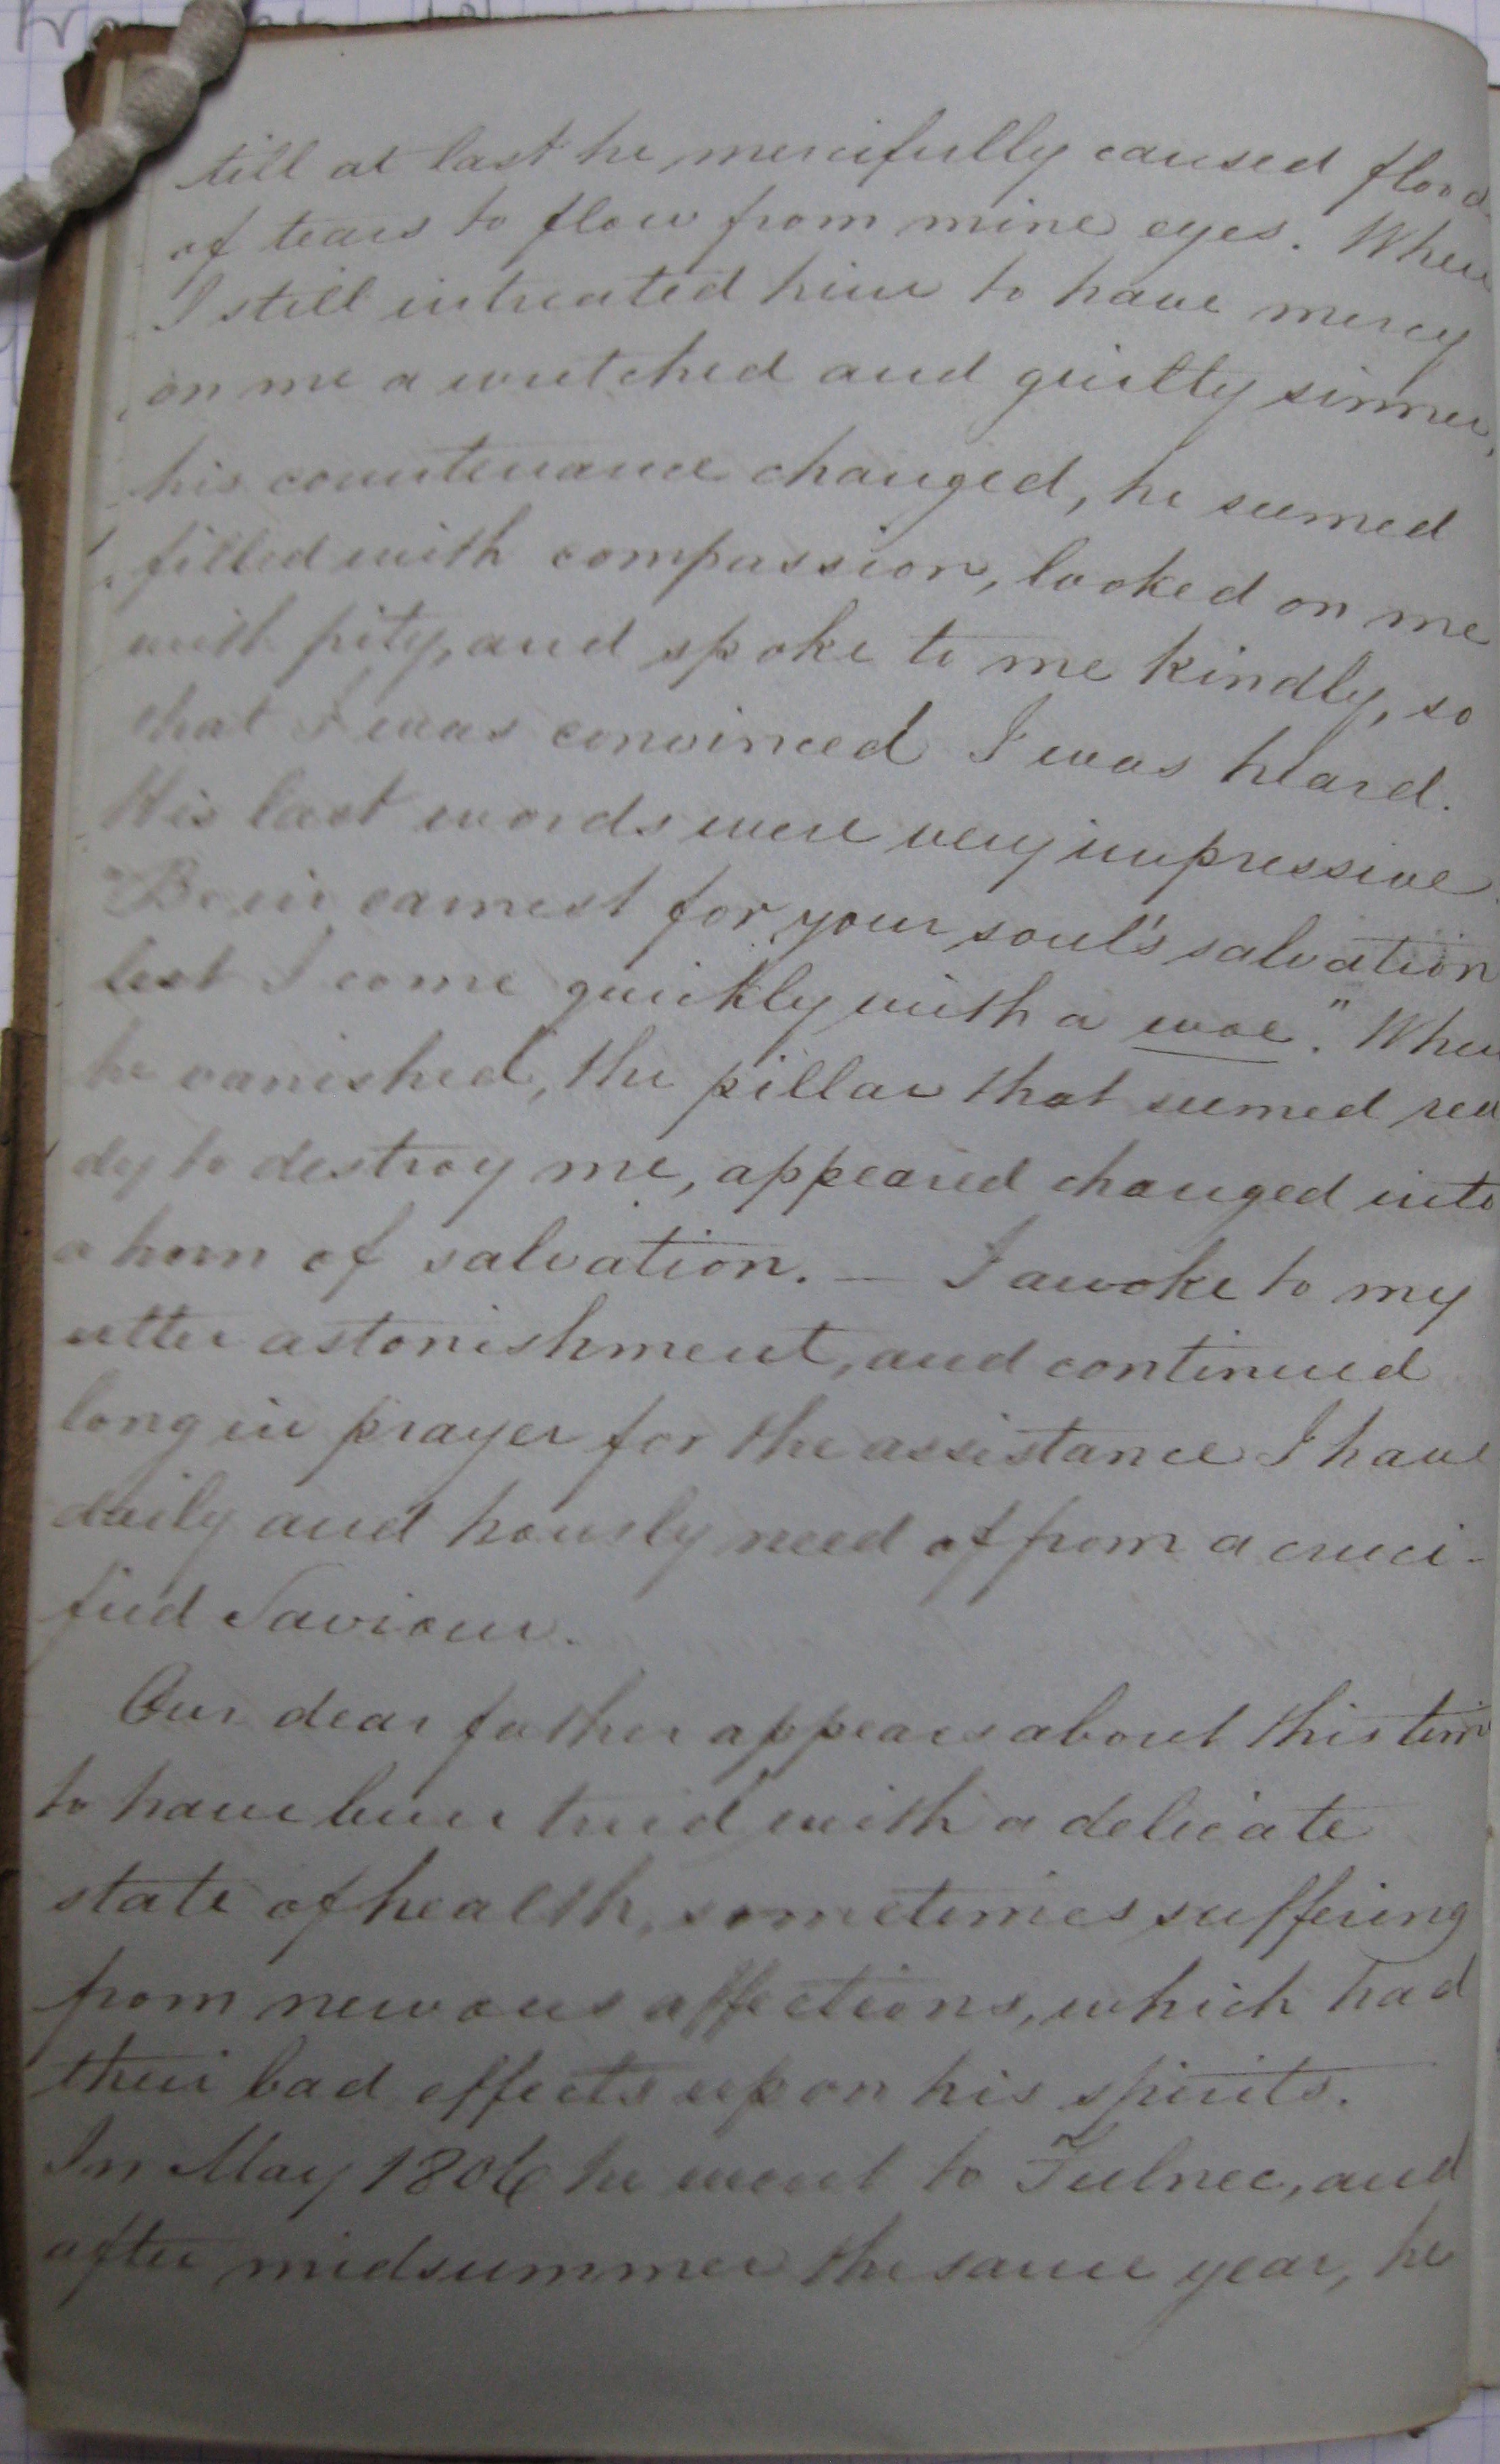 till at last he mercifully caused floods
of tears to flow from mine eyes. When
I still intreated him to have mercy
on me a wretched and guilty sinner,
his countenance changed, he seemed
filled with compassion, looked on me
with pity, and spoke to me kindly, so
that I was convinced I was heard.
His last words were very impressive
"Be in earnest for your soul's salvation
lest I come quickly with a woe." When
he vanished, the pillar that seemed rea
dy to destroy me, appeared changed into
a horn of salvation. — I awoke to my
utter astonishment, and continued
long in prayer for the assistance I have
daily and hourly need of from a cruci-
fied Saviour.
Our dear father appears about this time
to have been tried with a delicate
state of health, sometimes suffering
from nervous affections, which had
their bad effects upon his spirits.
In May 1806 he went to Fulnec, and
after midsummer the same year, he